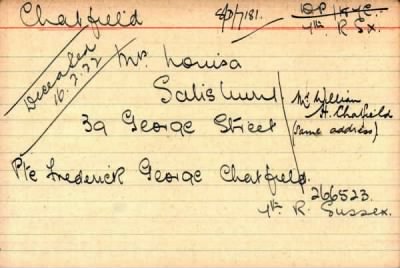 Chatfield
8/D/7181.
4th. R Sx.
Deceased
16.2.22
Mrs. Louisa
Salisbury
Mr William
H. Chatfield
(same address)
39 George Street
Pte Frederick George Chatfield.
266523.
4th R. Sussex.